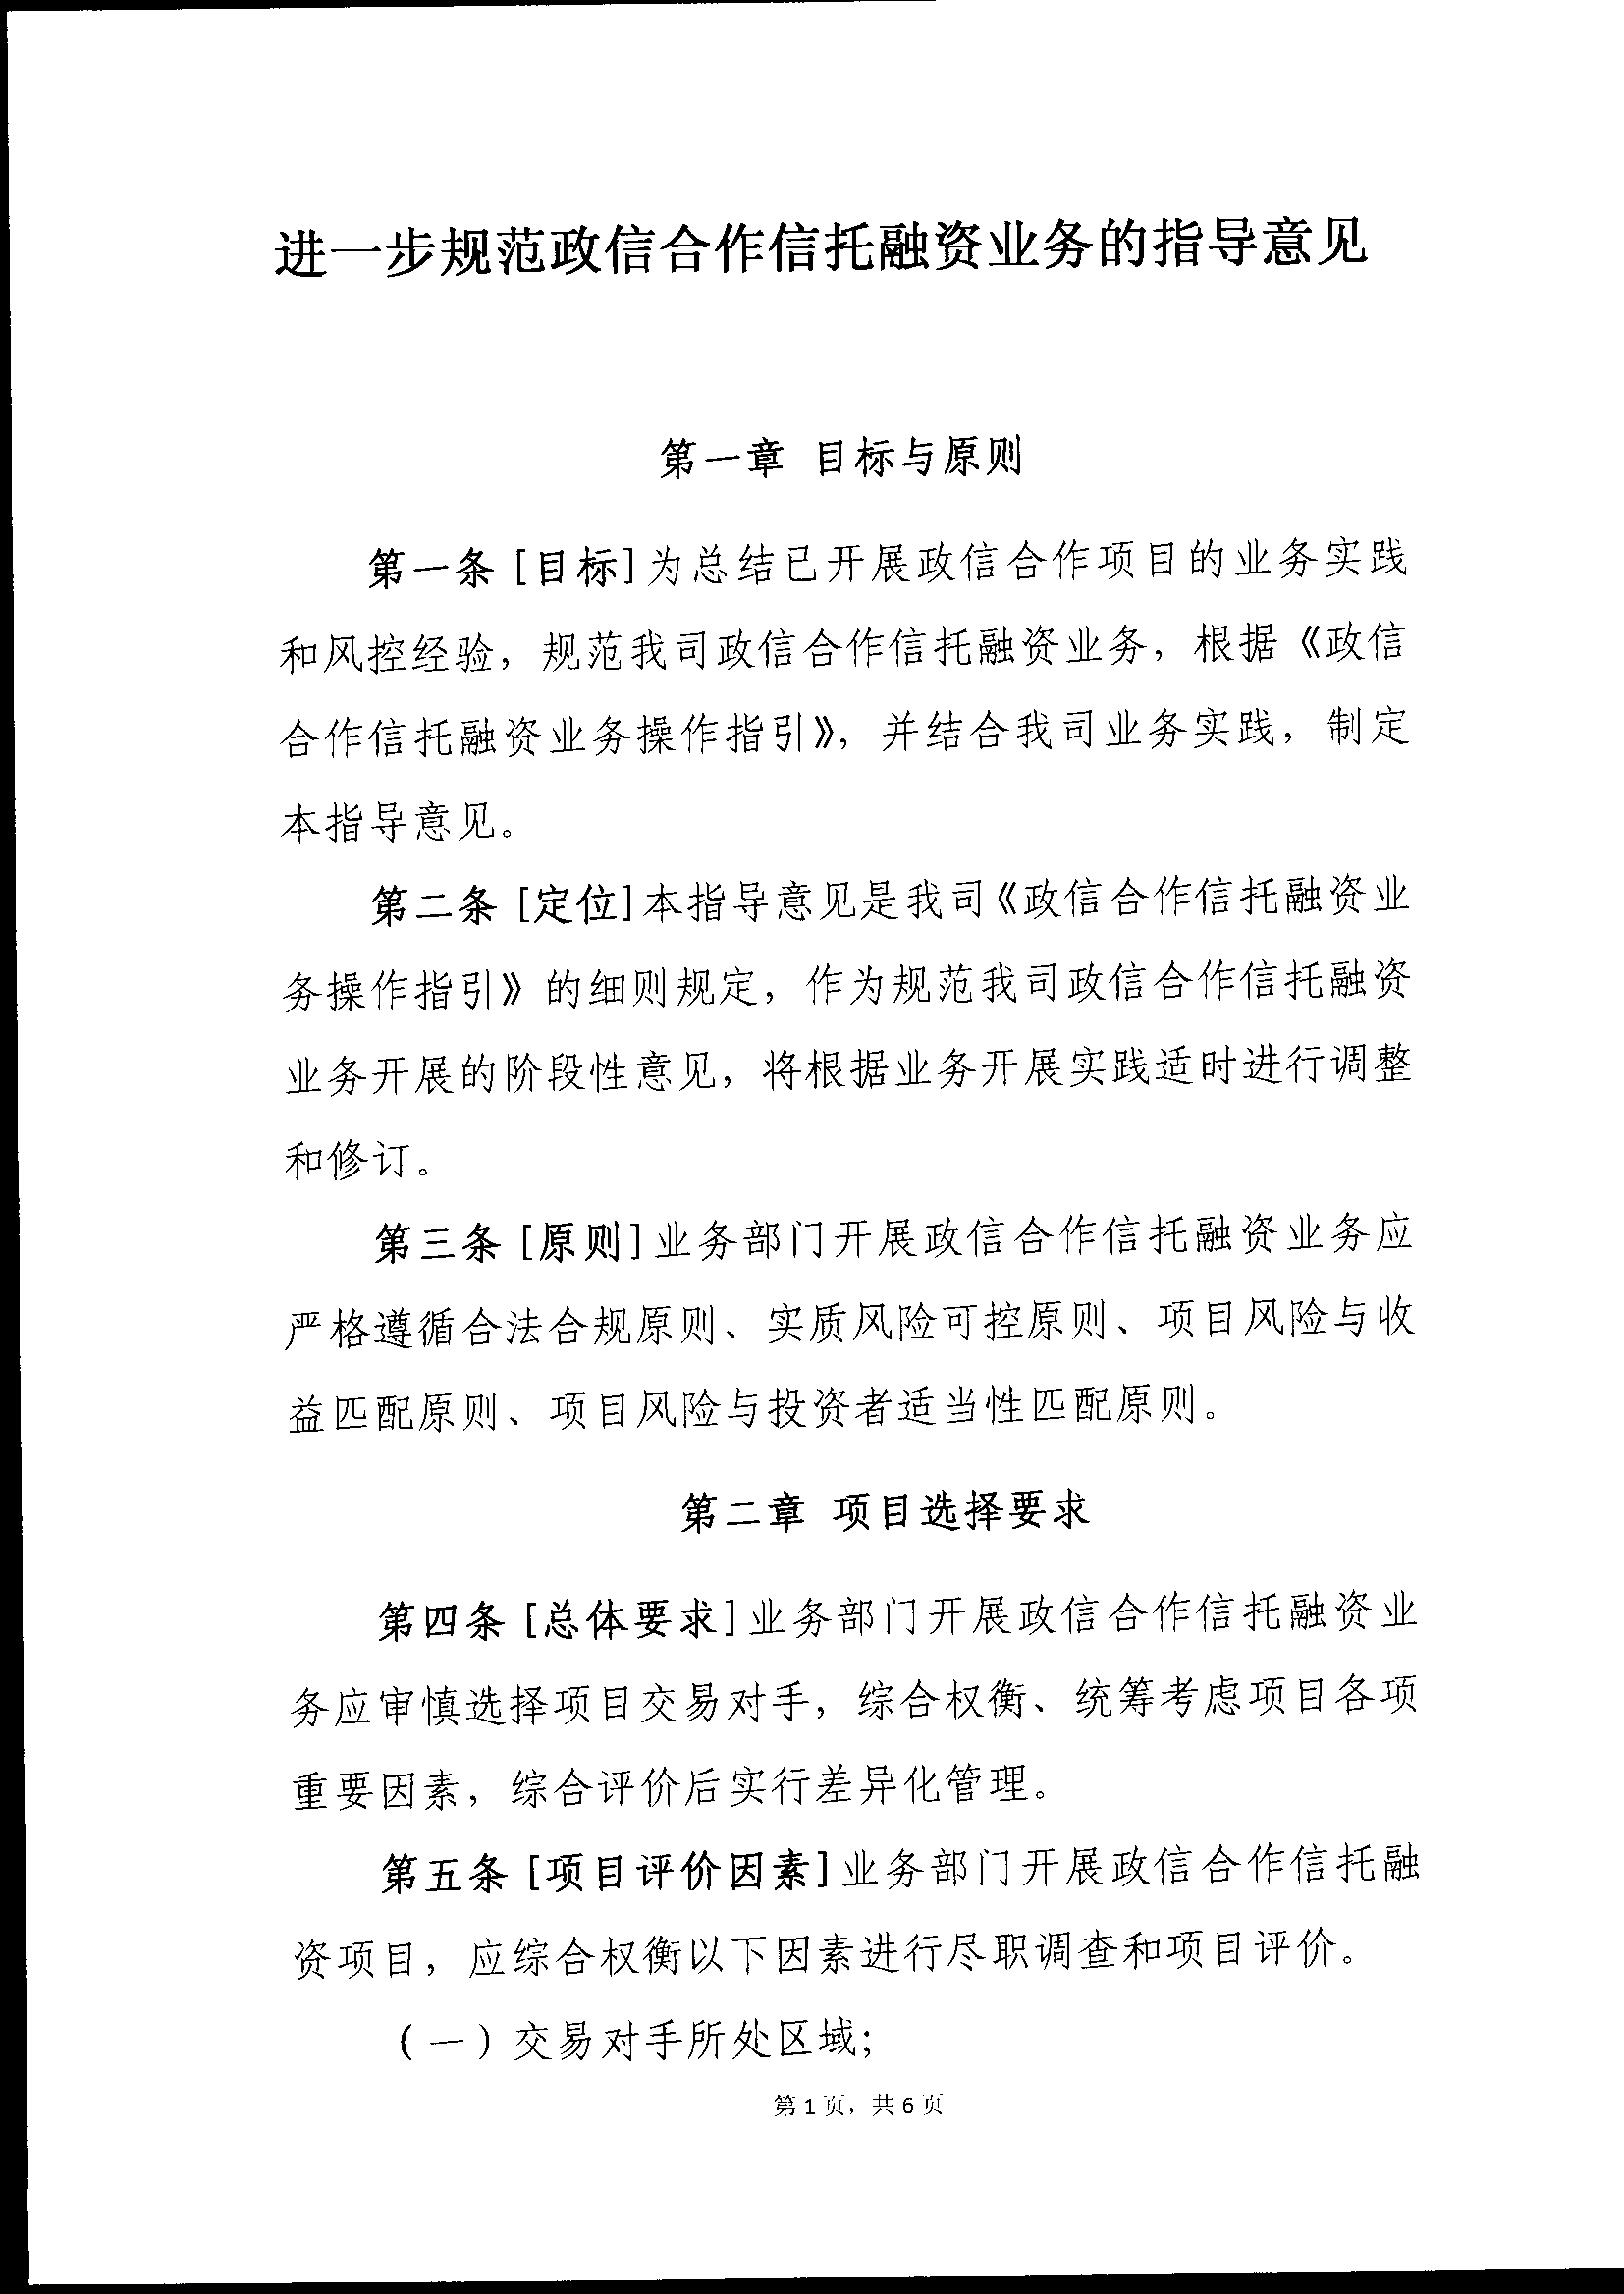 进一步规范政信合作信托融资业务的指导意见
第一章 目标与原则
第一条 [目标]为总结已开展政信合作项目的业务实践
和风控经验，规范我司政信合作信托融资业务，根据《政信
合作信托融资业务操作指引》，并结合我司业务实践，制定
本指导意见。
第二条 [定位]本指导意见是我司《政信合作信托融资业
务操作指引》的细则规定，作为规范我司政信合作信托融资
业务开展的阶段性意见，将根据业务开展实践适时进行调整
和修订。
第三条 [原则]业务部门开展政信合作信托融资业务应
严格遵循合法合规原则、实质风险可控原则、项目风险与收
益匹配原则、项目风险与投资者适当性匹配原则。
第二章 项目选择要求
第四条 [总体要求]业务部门开展政信合作信托融资业
务应审慎选择项目交易对手，综合权衡、统筹考虑项目各项
重要因素，综合评价后实行差异化管理。
第五条 [项目评价因素]业务部门开展政信合作信托融
资项目，应综合权衡以下因素进行尽职调查和项目评价。
（一）交易对手所处区域；
第 1 页，共 6 页